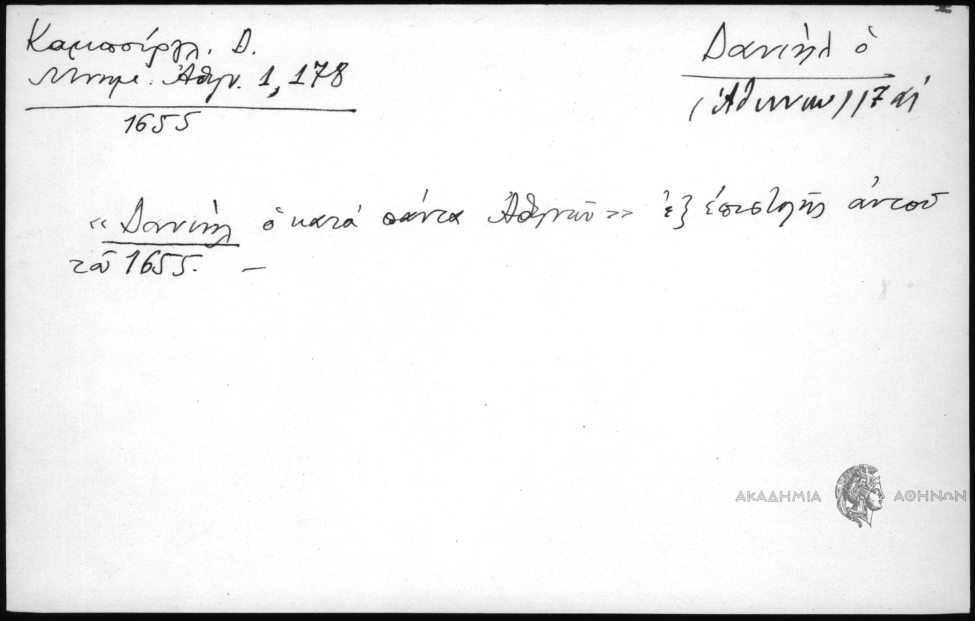 Καμπούργλ. Δ.
Μνημ. Ἀθην. 1, 178
1655
Δανιήλ ὁ
(Ἀθηναῖος) 17 αἰ
«Δανιήλ ὁ κατά πάντα Ἀθηναῖος» ἐξ ἐπιστολῆς αὐτοῦ
τοῦ 1655. —
ΑΚΑΔΗΜΙΑ ΑΘΗΝΩΝ